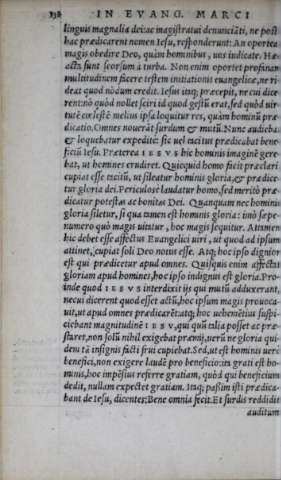 138 IN EVANG. MARCI
linguis magnalia dei: ac magistratui denunciāti, ne post
hac prædicarent nomen Iesu, respōderunt: An oportea
magis obedire Deo, quàm hominibus, uos iudicate. Hæc
acta sunt seorsum à turba. Non enim oportet profanam
multitudinem facere testem initiationis euangelicæ, ne ri-
deat quod nōdum credit. Iesus itaq; præcepit, ne cui dice
rent: nō quòd nollet sciri id quod gestū erat, sed quòd uir-
tutē cœlestē melius ipsa loquitur res, quàm hominū præ-
dicatio. Omnes nouerāt surdum & mutū. Nunc audiebat
& loquebatur expeditè: sic uel tacitus prædicabat bene-
ficiū Iesu. Præterea IESVS hic hominis imaginē gere
bat, ut homines erudiret. Quicquid homo facit præclari
cupiat esse tacitū, ut sileatur hominis gloria, & prædice-
tur gloria dei. Periculose laudatur homo, sed meritò præ-
dicatur potestas ac bonitas Dei. Quanquam nec hominis
gloria siletur, si qua tamen est hominis gloria: imò sæpe-
numero quò magis uitatur, hoc magis sequitur. Attamen
hic debet esse affectus Euangelici uiri, ut quod ad ipsum
attinet, cupiat soli Deo notus esse. Atq; hoc ipso dignior
est qui prædicetur apud omnes. Quisquis enim affectat
gloriam apud homines, hoc ipso indignus est gloria. Pro-
inde quod IESVS interdixit ijs qui mutū adduxerant,
ne cui dicerent quod esset actū, hoc ipsum magis prouoca-
uit, ut apud omnes prædicarēt: atq; hoc uehemētius suspi-
ciebant magnitudinē IESV, qui quū talia posset ac præ-
staret, non solū nihil exigebat præmij, uerū ne gloria qui-
dem tā insignis facti frui cupiebat. Sed, ut est hominis uerè
benefici, non exigere laudē pro beneficio: ita grati est ho-
minis, hoc impēsius referre gratiam, quòd qui beneficium
dedit, nullam expectet gratiam. Itaq; passim isti prædica-
bant de Iesu, dicentes: Bene omnia fecit. Et surdis reddidit
auditum